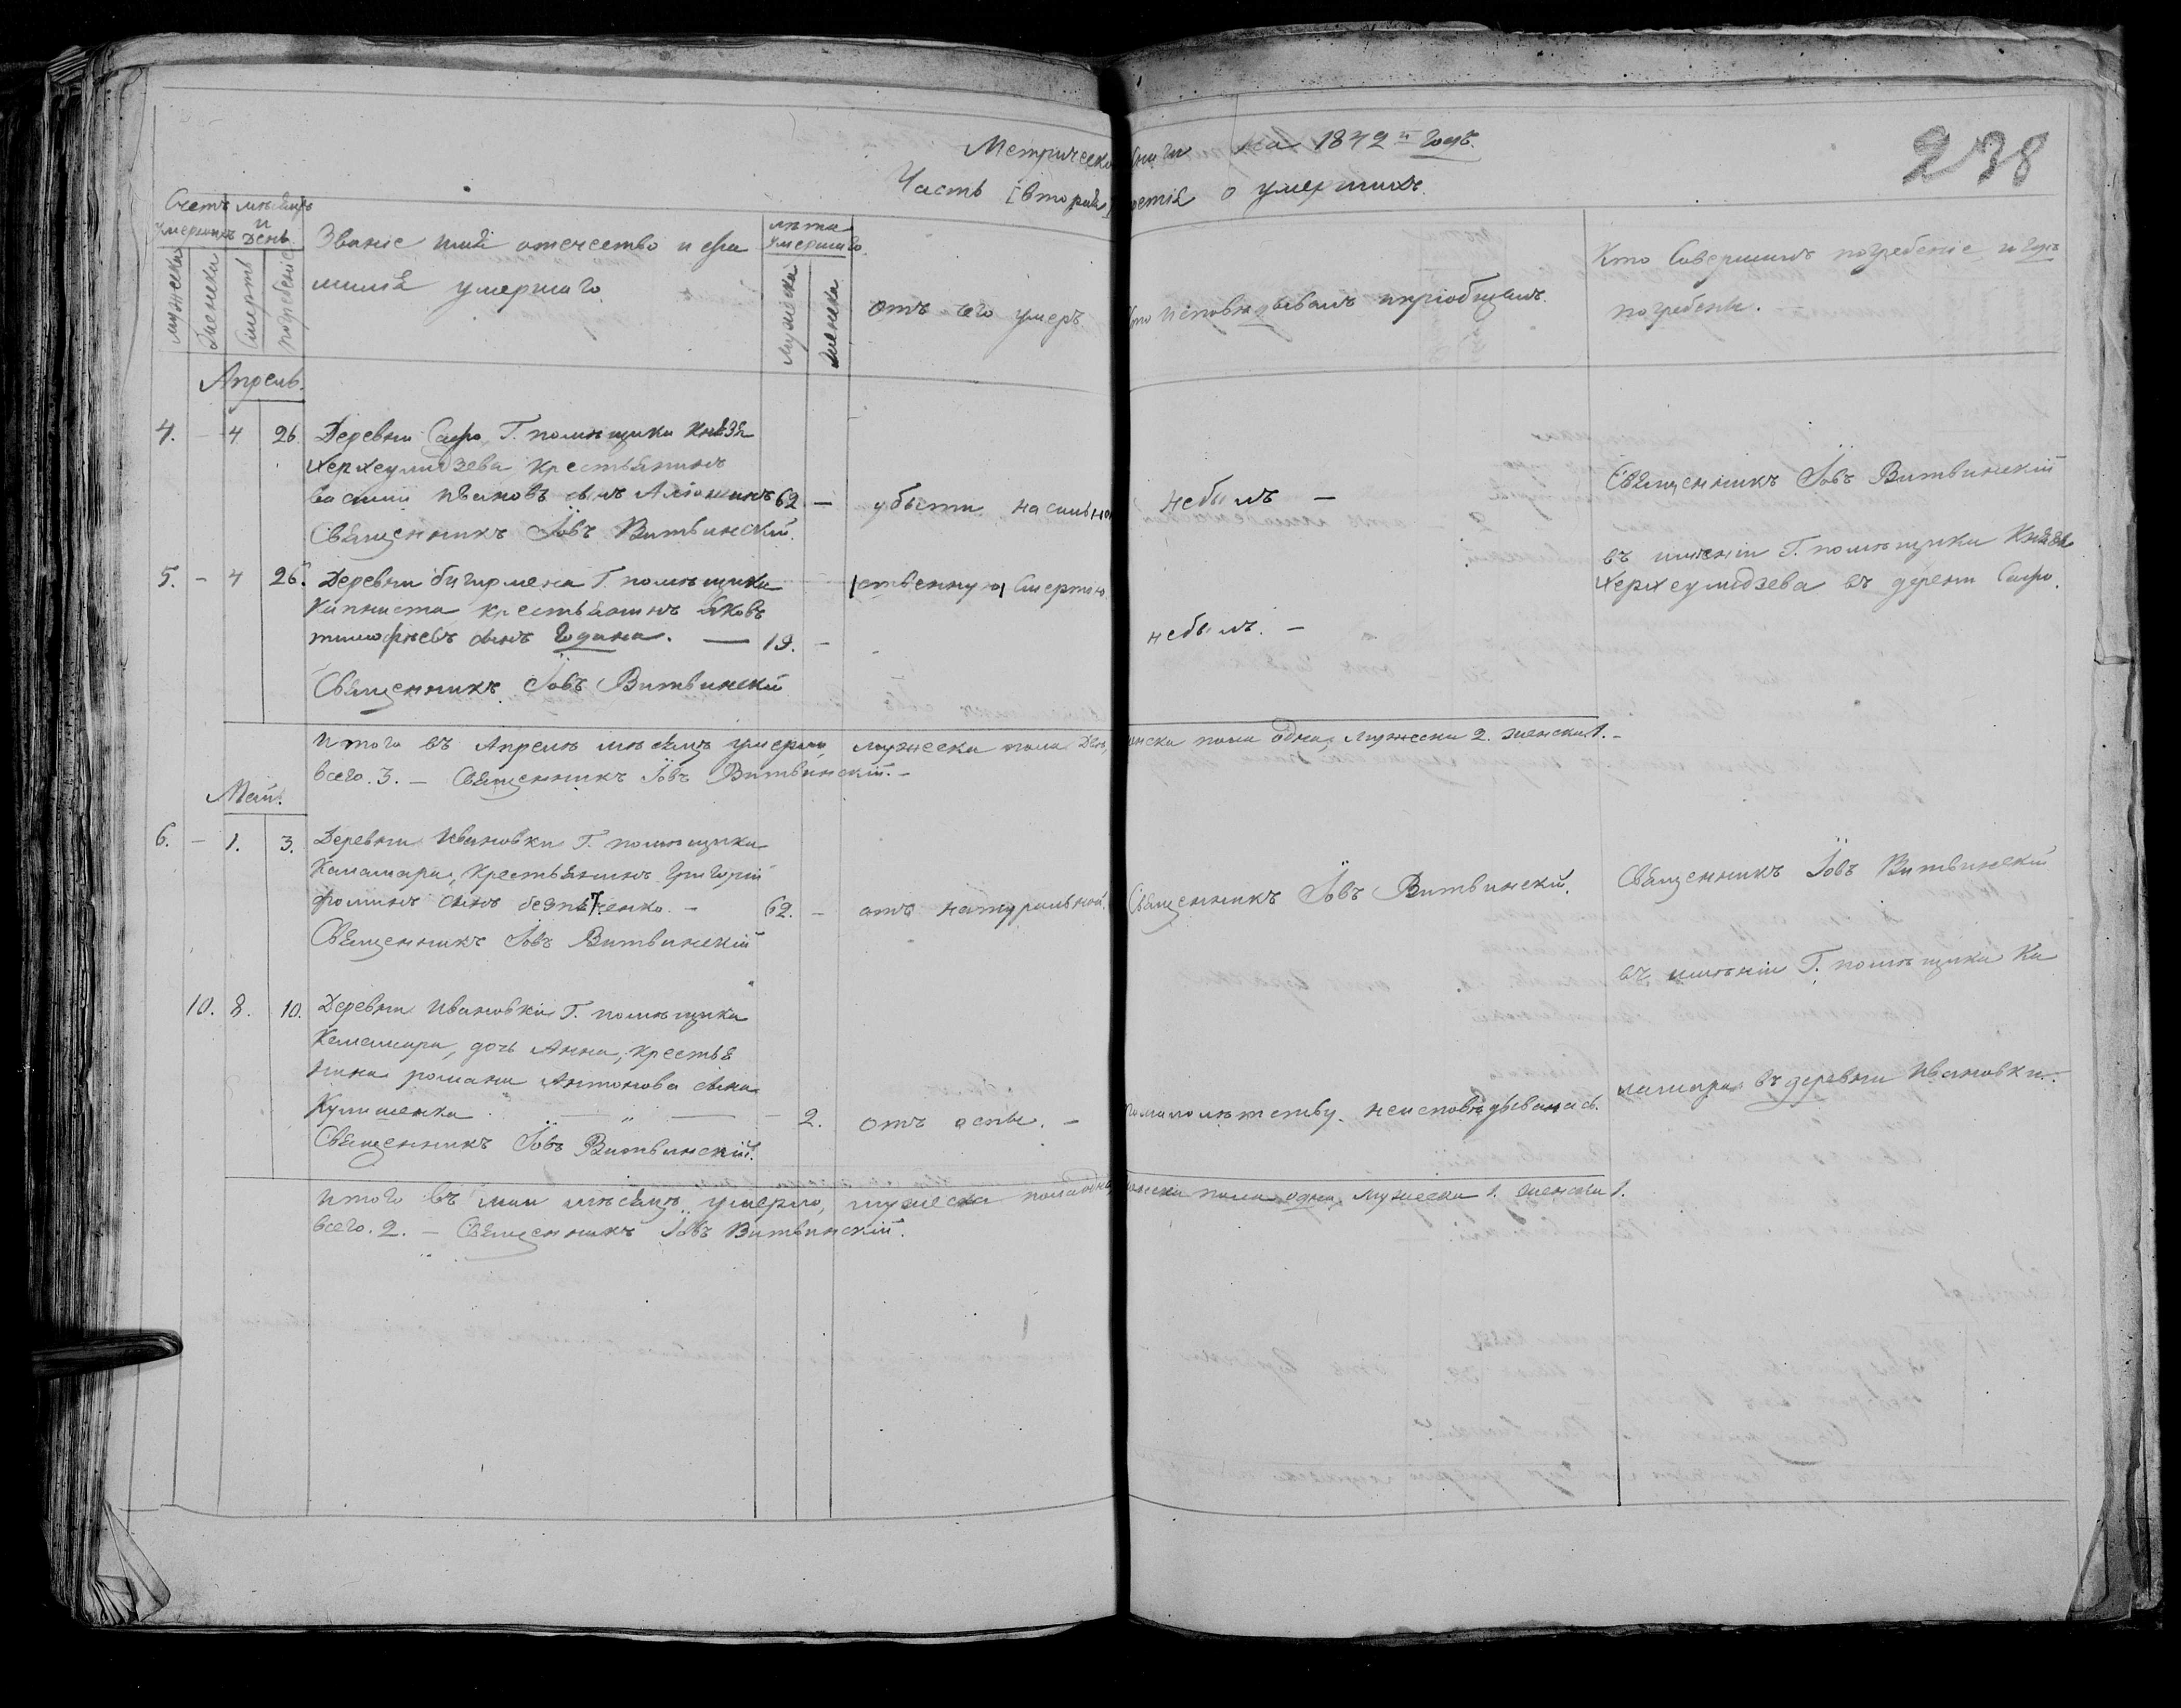 Метрической книги на 1842й годъ.
238
Часть [вторая] третія о умершихъ.
Счетъ умершихъ
мѣсяцъ и день
мужеска
женска
Смерть
погребеніе
Званіе имя отечество и фа
милія умершаго.
лѣта умершаго.
мужеска
женска
отъ чего умеръ
Кто исповѣдывалъ и пріобщалъ.
Кто Совершилъ погребеніе и гдѣ
погребены.
Апрель.
4. – 4 26. Деревни Г. помѣщика Князя
Херхеулидзева крестьянинъ
Василій Ивановъ сынъ 62 –
убыты насильно
небылъ –
Священникъ Іовъ Витвинскій.
Священникъ Іовъ Витвинскій
въ имѣніи Г. помѣщика Князя
Херхеулидзева въ деревни
5. – 4 26. Деревни Г. помѣщика
Капниста крестьянинъ Яковъ
тимофѣевъ сынъ Година. – 19. –
ственную Смертію
небылъ. –
Священникъ Іовъ Витвинскій
Итого въ Апрелѣ мѣсяцѣ умерло, мужеска пола два, женска пола одна, Мужеска 2. женска 1. –
всего. 3. – Священникъ Іовъ Витвинскій. –
Май.
6. – 1. 3. Деревни Ивановки Г. помѣщика
Каламара, Крестьянинъ Григорій
фоминъ сынъ – 62. – отъ натуральной. Священникъ Іовъ Витвинскій.
Священникъ Іовъ Витвинскій
Священникъ Іовъ Витвинскій
въ имѣніи Г. помѣщика Ка
ламара въ деревни Ивановки. –
10. 8. 10. Деревни Ивановки Г. помѣщика
Каламара, дочь Анна, Крестья
нина романа Антонова сына
Кулишенка – " – – 2. отъ оспы. – помалолѣтству неисповѣдывалась.
Священникъ Іовъ Витвинскій.
Итого въ маи мѣсяцѣ умерло, мужеска пола одинъ, женска пола одна, Мужеска 1. женска 1.
всего. 2. – Священникъ Іовъ Витвинскій.